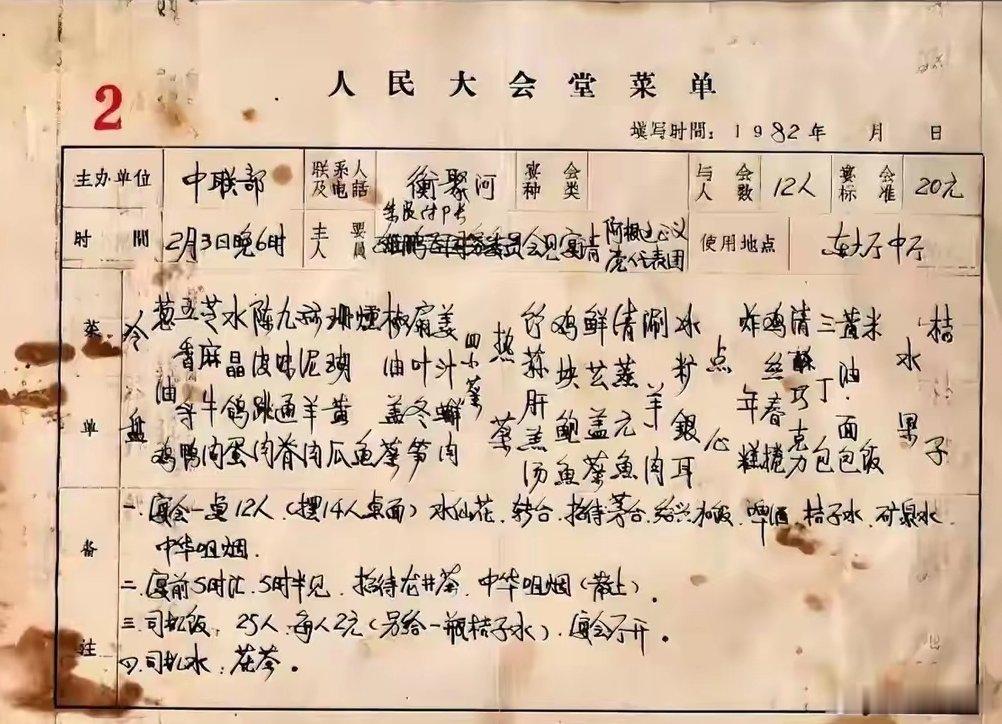 2
人民大会堂菜单
填写时間：1982年 月 日
主办单位 中联部 联系人及电話 衡聚河 宴会种类 与会人数 12人 宴会标准 20元
时間 2月3日晚6时 主要人員 会见宴请 阿根廷正义党代表团 使用地点 东大厅中厅
菜单
冷盘
葱油鸡
五香鸭
芝麻牛肉
水晶鸽蛋
陈皮肉
九味通脊
泥羊肉
珊瑚黄瓜
燻鱼
椒油盖菜
叶冬笋
姜汁肉
四小菜
热菜
竹荪肝羔汤
鸡块鲍鱼
鲜盖菜
清蒸元鱼
涮羊肉
冰籽銀耳
点心
炸年糕
鸡丝春捲
清酥巧克力
三丁包
黄油面包
米饭
水果
桔子
备注
一.宴会一桌12人（摆14人桌面）水仙花、转台、招待茅台、绍兴、啤酒、桔子水、矿泉水、
中华咀烟.
二.宴前5时汇、5时半见、招待龙井茶、中华咀烟（带上）.
三.司机饭、25人、每人2元（另给一瓶桔子水）、宴会厅开。
四.司机水、花茶。